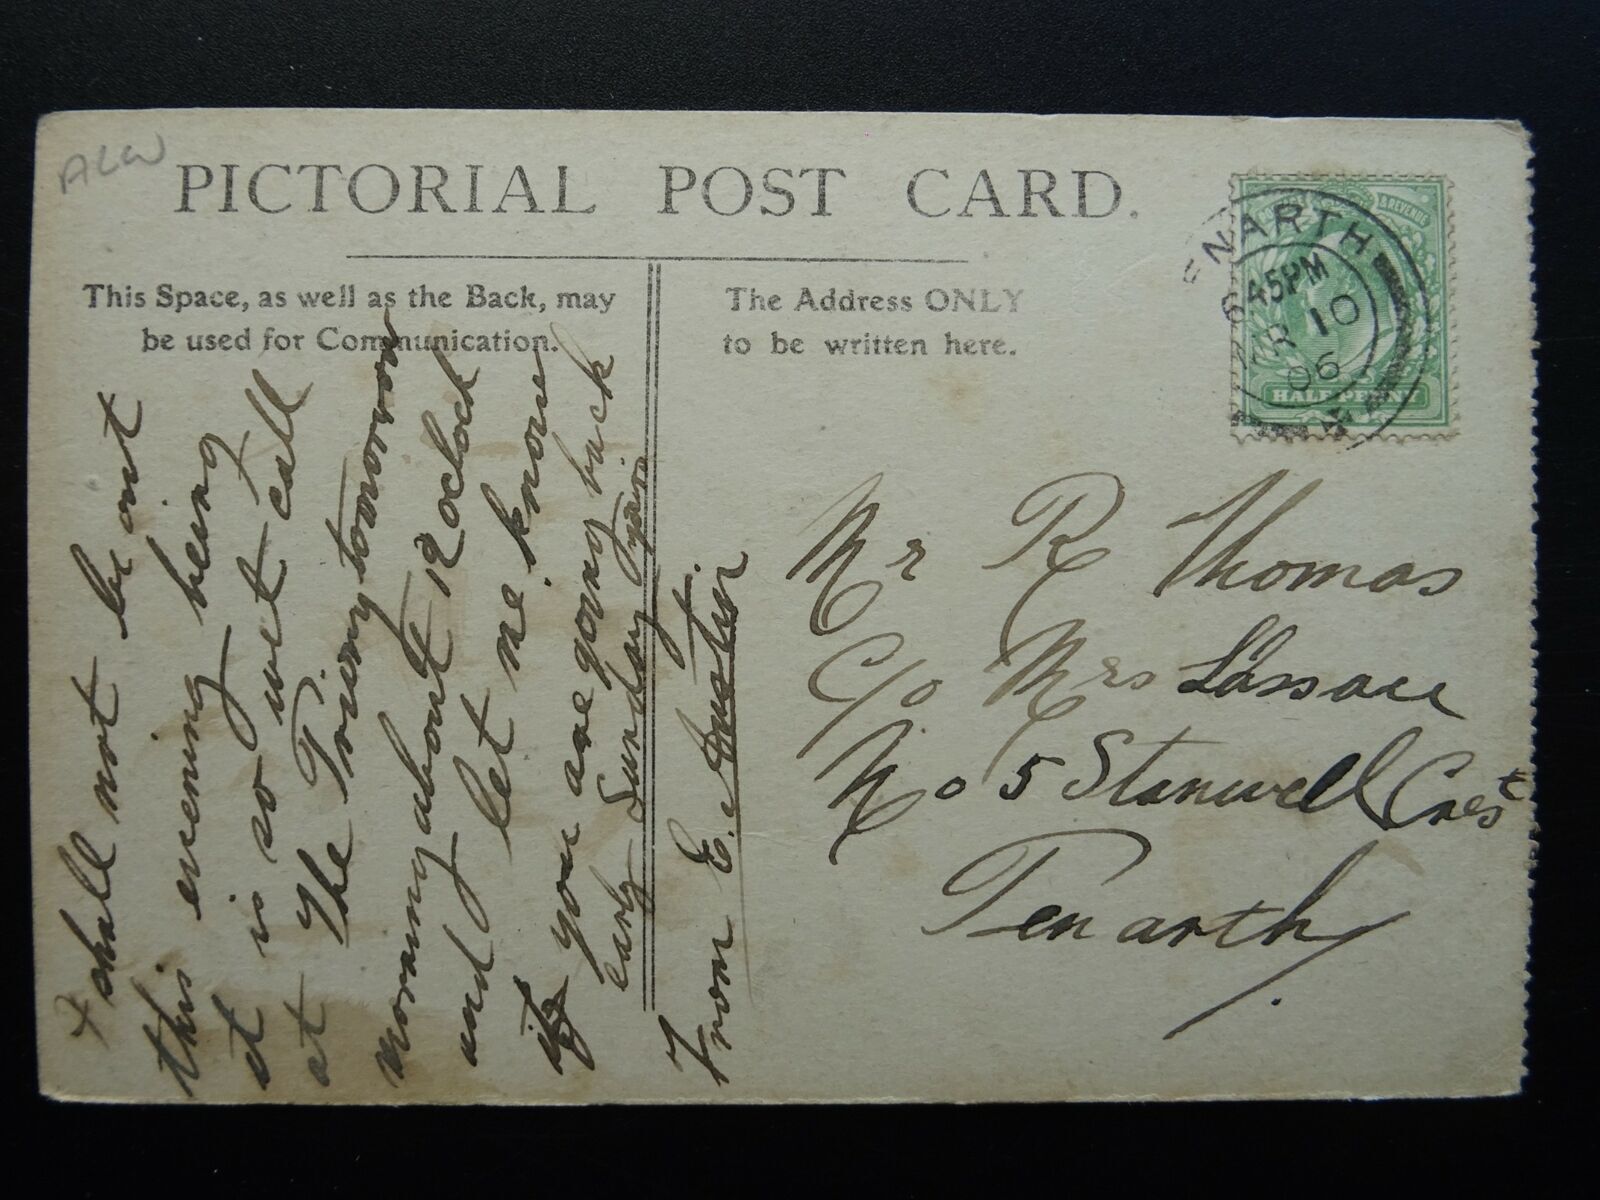 ALW
PICTORIAL POST CARD.
This Space, as well as the Back, may
be used for Communication.
The Address ONLY
to be written here.
& REVENUE
ENARTH
6 45PM
AP 10
06
HALFPENNY
I shall not be out
this evening being
it is so wet call
at The Priory tomorrow
morning about 12 oclock
and let me know
if you are going back
early Sunday
From E. Austin
Mr R Thomas
C/o Mrs
No 5 Stanwell Crest
Penarth